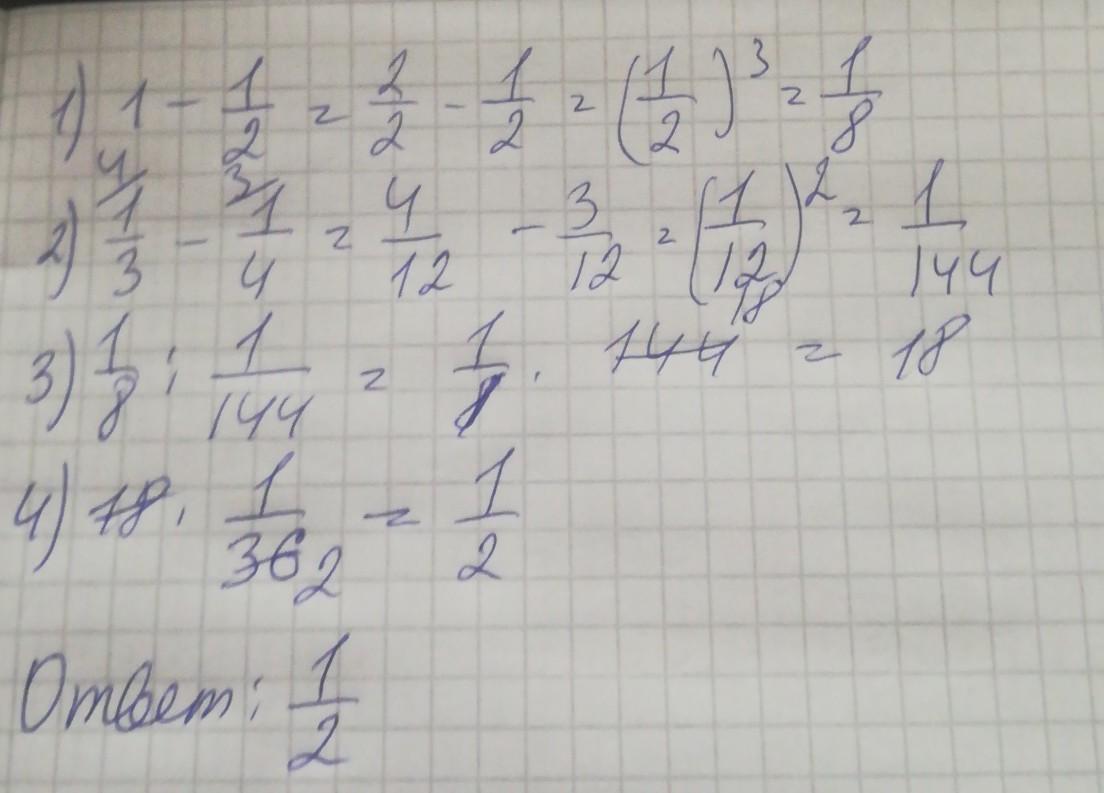 1) 1 - 1/2 = 2/2 - 1/2 = (1/2)^3 = 1/8
2) 4/ 1/3 - 3/ 1/4 = 4/12 - 3/12 = (1/12)^2 = 1/144
3) 1/8 : 1/144 = 1/8 · 144 18 = 18
4) 18 · 1/36 2 = 1/2
Ответ: 1/2